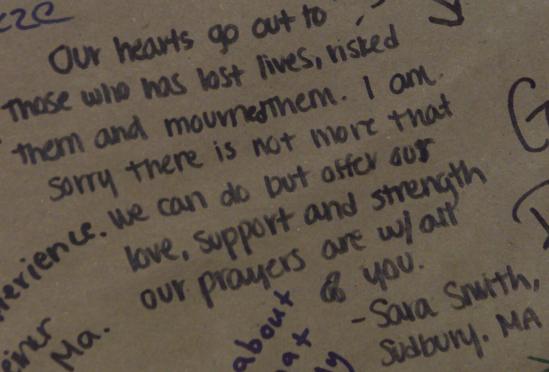 Our hearts go out to
Those who has lost lives, risked
them and mourned them. I am
sorry there is not more that
we can do but offer our
love, support and strength
our prayers are w/ all
of you.
- Sara Smith,
Sudbury, MA
erience.
Ma.
about